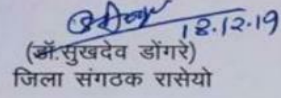 18.12.19
(डॉ.सुखदेव डोंगरे)
जिला संगठक रासेयो